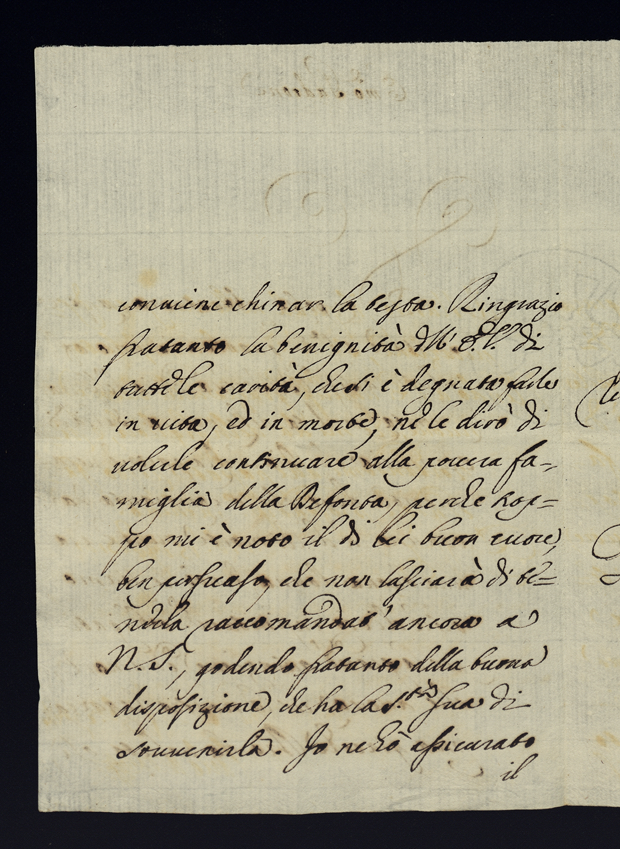 conviene chinar la testa. Ringrazio
fratanto la benignità dell' E. V. di
tutte le carità, che si è degnata farle
in vita, ed in morte, nè le dirò di
volerle continuare alla povera fa-
miglia della Defonta, perche trop-
po mi è noto il di lei buon cuore,
ben persuaso, che non lasciarà di te-
nerla raccomandat' ancora a
N. S., godendo fratanto della buona
disposizione, che ha la S.tà Sua di
souvenirla. Io ne hò assicurato
il